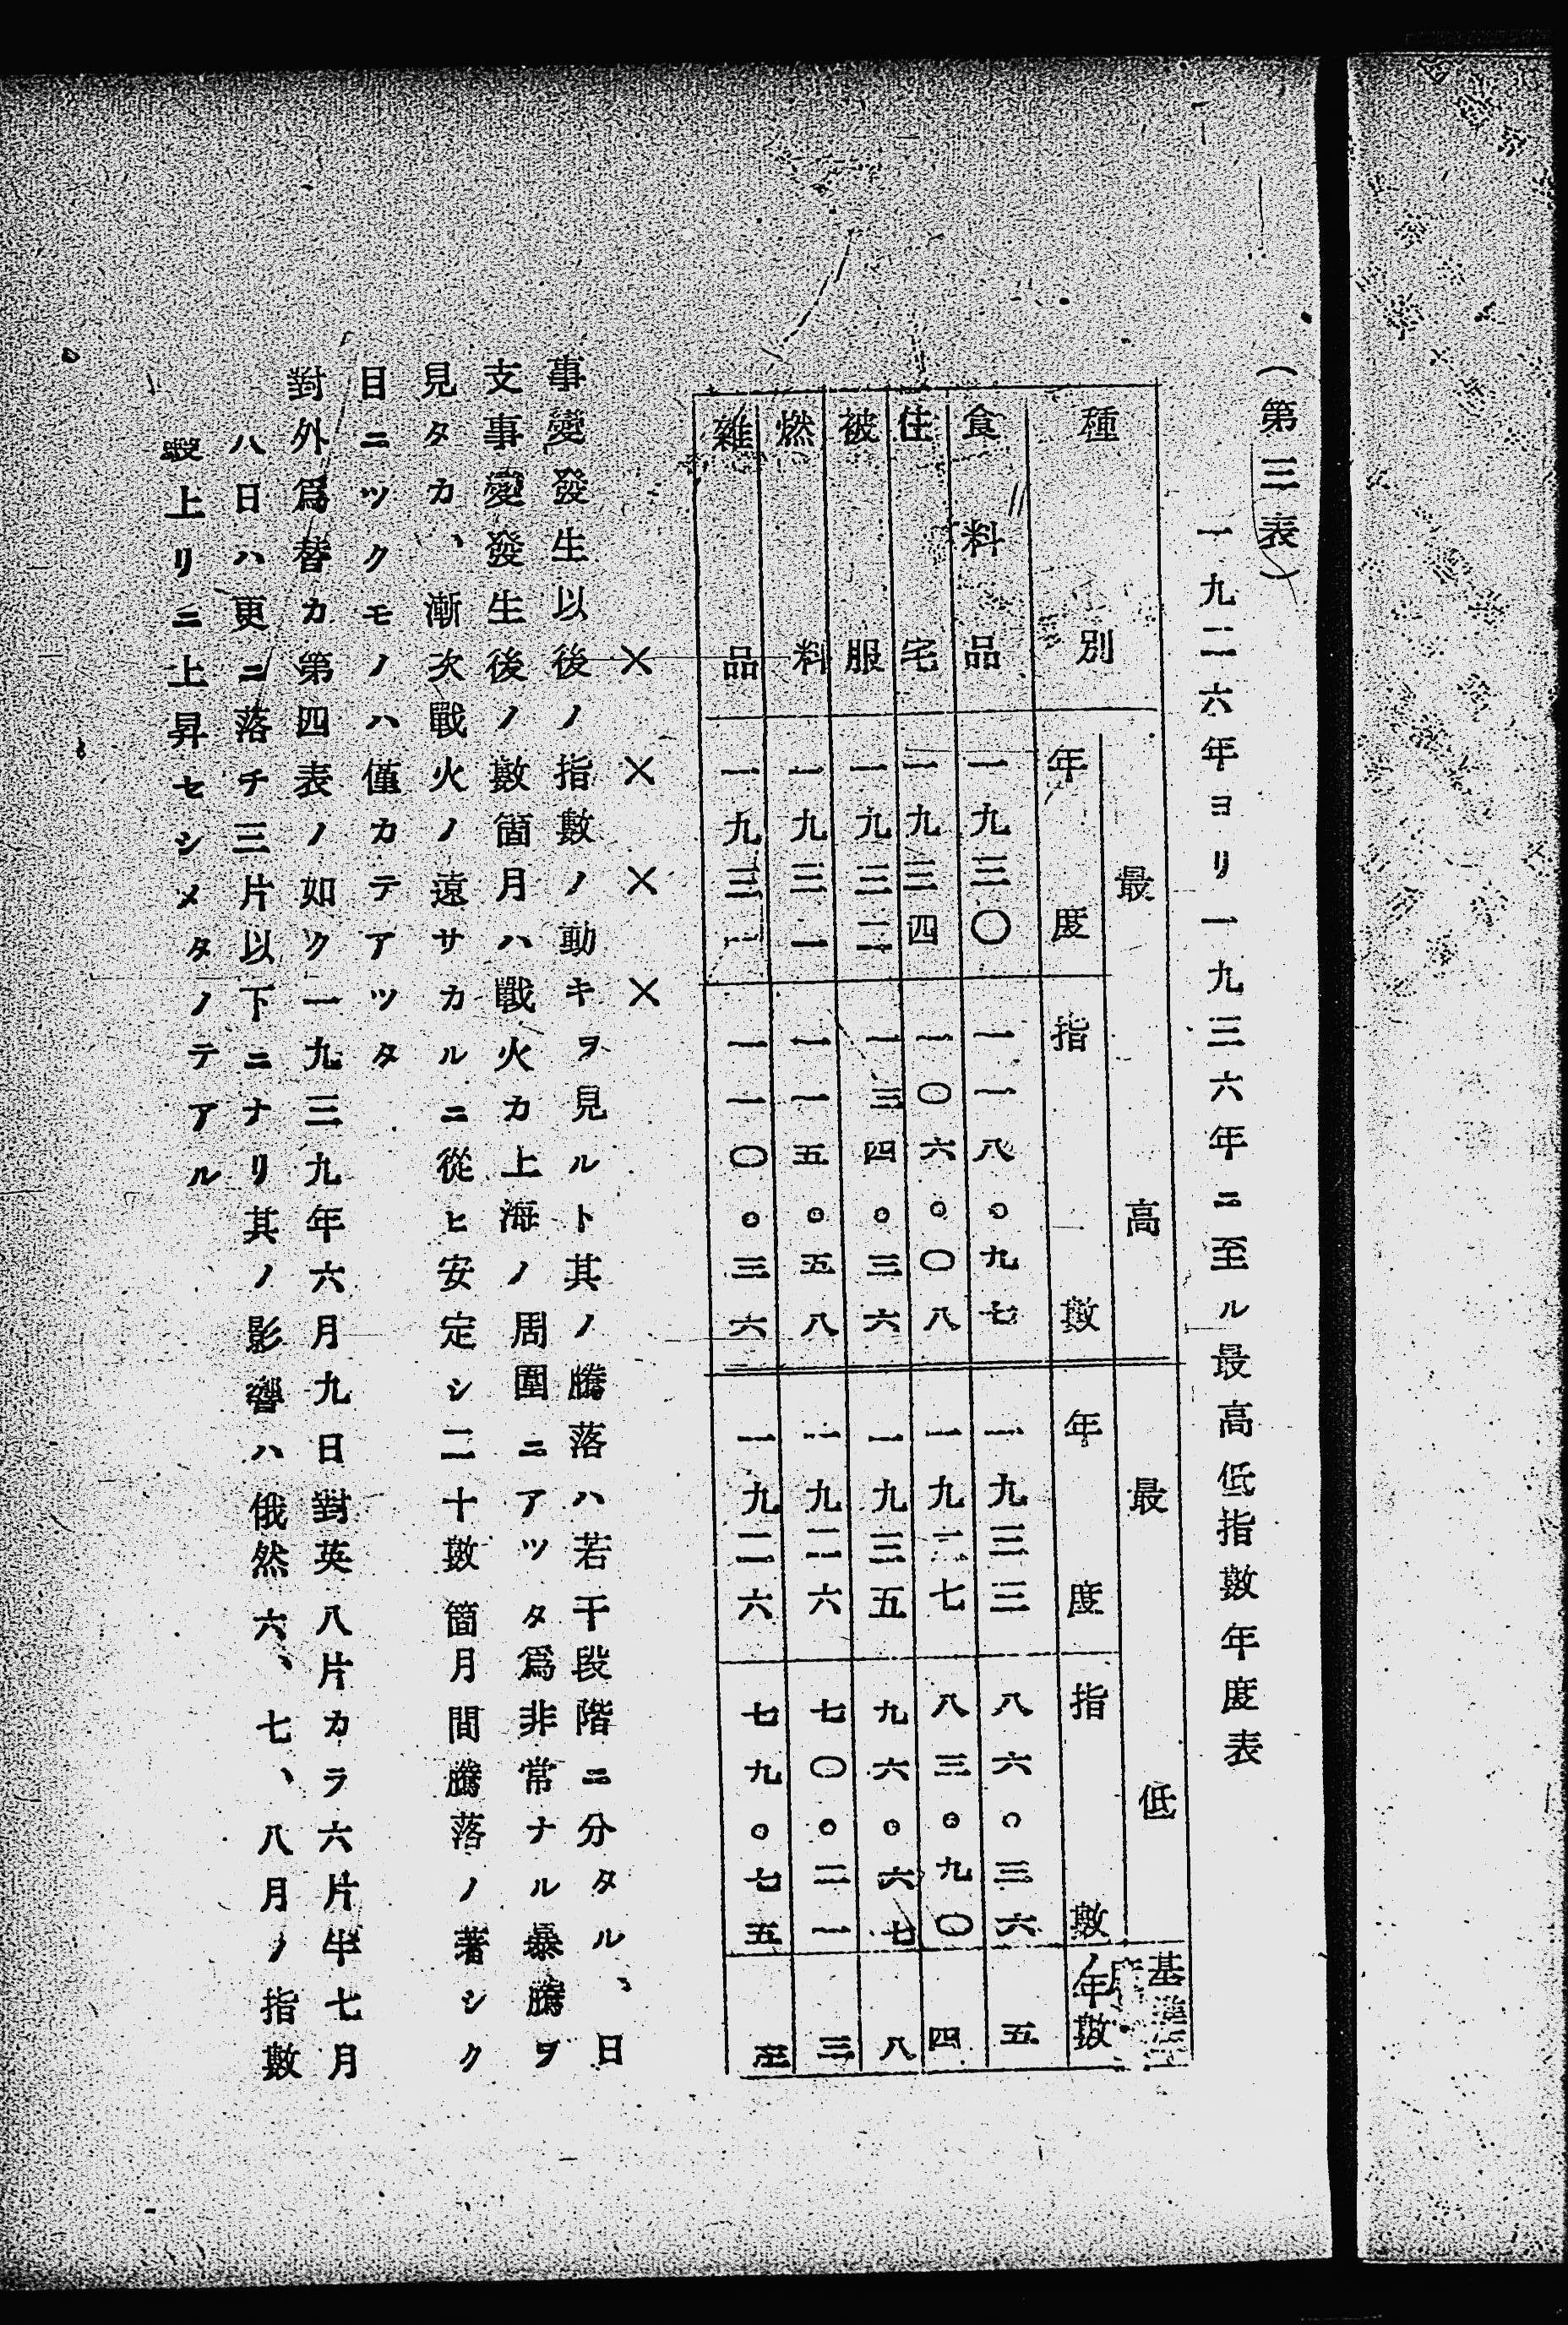 (第三表)
一九二六年ヨリ一九三六年ニ至ル最高低指數年度表
種別 最高 年度 指數 最低 年度 指數 基準年ノ年數
食料品 一九三〇 一一八。九七 一九三三 八六。三六 五
住宅 一九三四 一〇六。〇八 一九二七 八三。九〇 四
被服 一九三二 一三四。三六 一九三五 九六。六七 八
燃料 一九三一 一一五。五八 一九二六 七〇。二一 三
雜品 一九三一 一一〇。三六 一九二六 七九。七五
× × × ×
事變發生以後ノ指數ノ動キヲ見ルト其ノ騰落ハ若干段階ニ分タル、日
支事變發生後ノ數箇月ハ戰火カ上海ノ周圍ニアツタ爲非常ナル暴騰ヲ
見タカ、漸次戰火ノ遠サカルニ從ヒ安定シ二十數箇月間騰落ノ著シク
目ニツクモノハ僅カテアツタ
對外爲替カ第四表ノ如ク一九三九年六月九日對英八片カラ六片半七月
八日ハ更ニ落チ三片以下ニナリ其ノ影響ハ俄然六、七、八月ノ指數
上リニ上昇セシメタノテアル